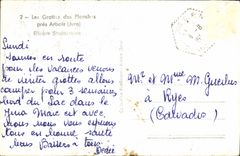 2 - Les Grottes des Planches
près Arbois (Jura)
Lundi
Sommes en route
pour les vacances venons
de visiter grottes allons
camper pour 3 semaines
bord du Lac dans le
Jura Marc est avec
nous nous vous espérons
tous en bonne santé
Bons Baisers à tous
Mr et Mme M.
à Ryes
(Calvados)